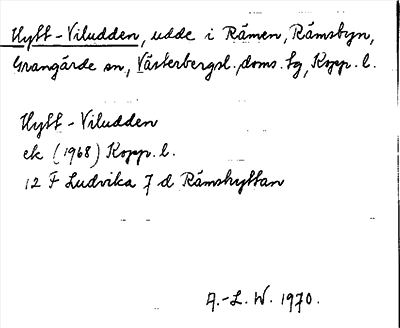 Hytt-Viludden, udde i Råmen, Råmsbyn,
Grangärde sn, Västerbergsl. doms. tg, Kopp. l.
Hytt-Viludden
ek (1968) Kopp. l.
12 F Ludvika 7 d Råmshyttan
A.-L. W. 1970.